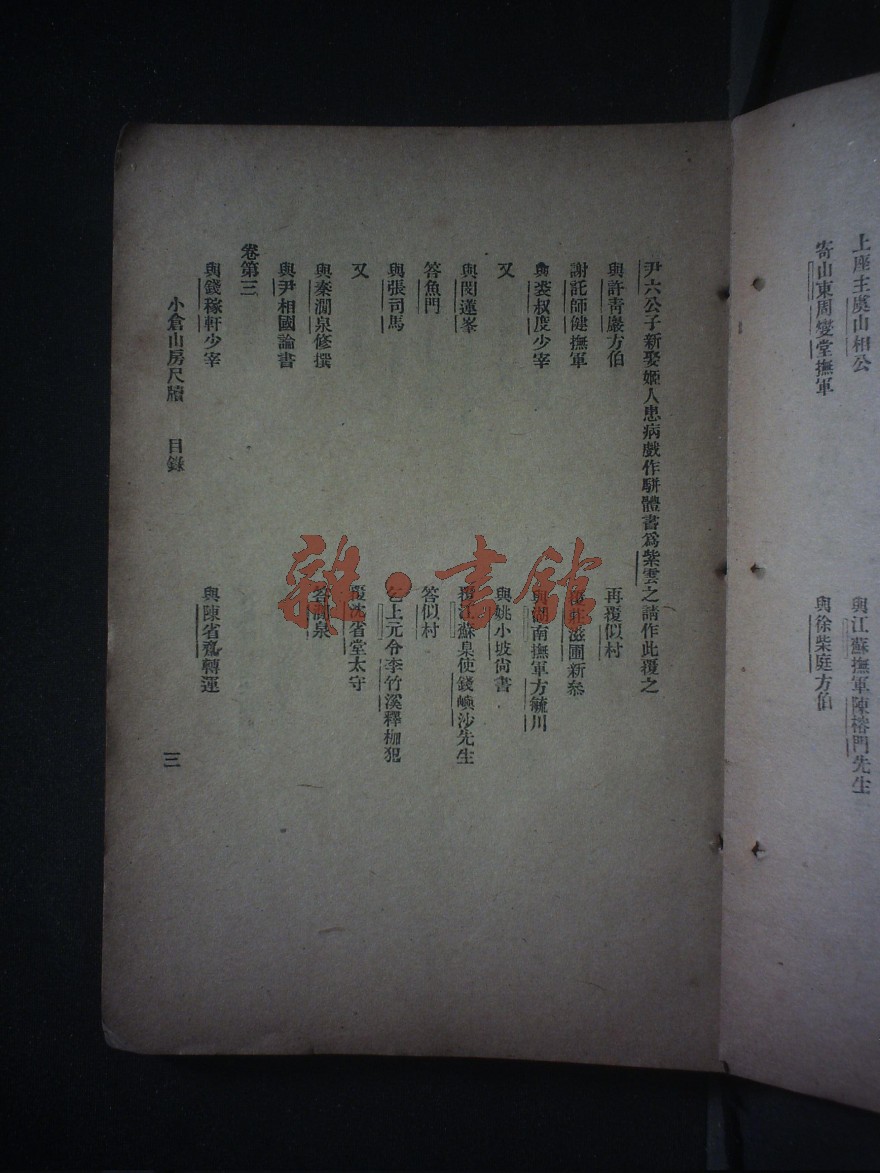 上座主虞山相公
與江蘇撫軍陳榕門先生
寄山東周燮堂撫軍
與徐柴庭方伯
尹六公子新娶姬人患病戲作駢體書爲紫雲之請作此覆之
與許靑巖方伯
再覆似村
謝託師健撫軍
覆莊滋圃新參
與裘叔度少宰
與湖南撫軍方毓川
又
與姚小坡尙書
與閔蓮峯
覆江蘇臬使錢嶼沙先生
答魚門
答似村
與張司馬
乞上元令李竹溪釋枷犯
又
覆沈省堂太守
與秦澗泉修撰
答澗泉
與尹相國論書
卷第三
與錢稼軒少宰
與陳省齋轉運
小倉山房尺牘 目錄
三
雜·書館